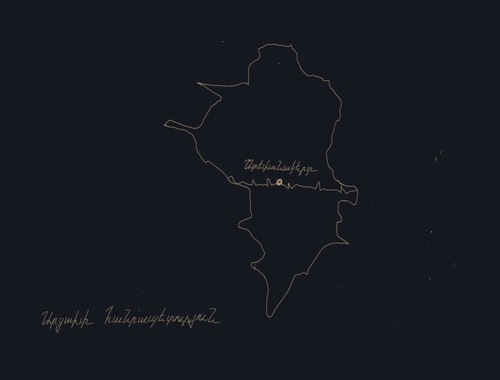 Ստեփանակերտ
Արցախի հանրապետություն